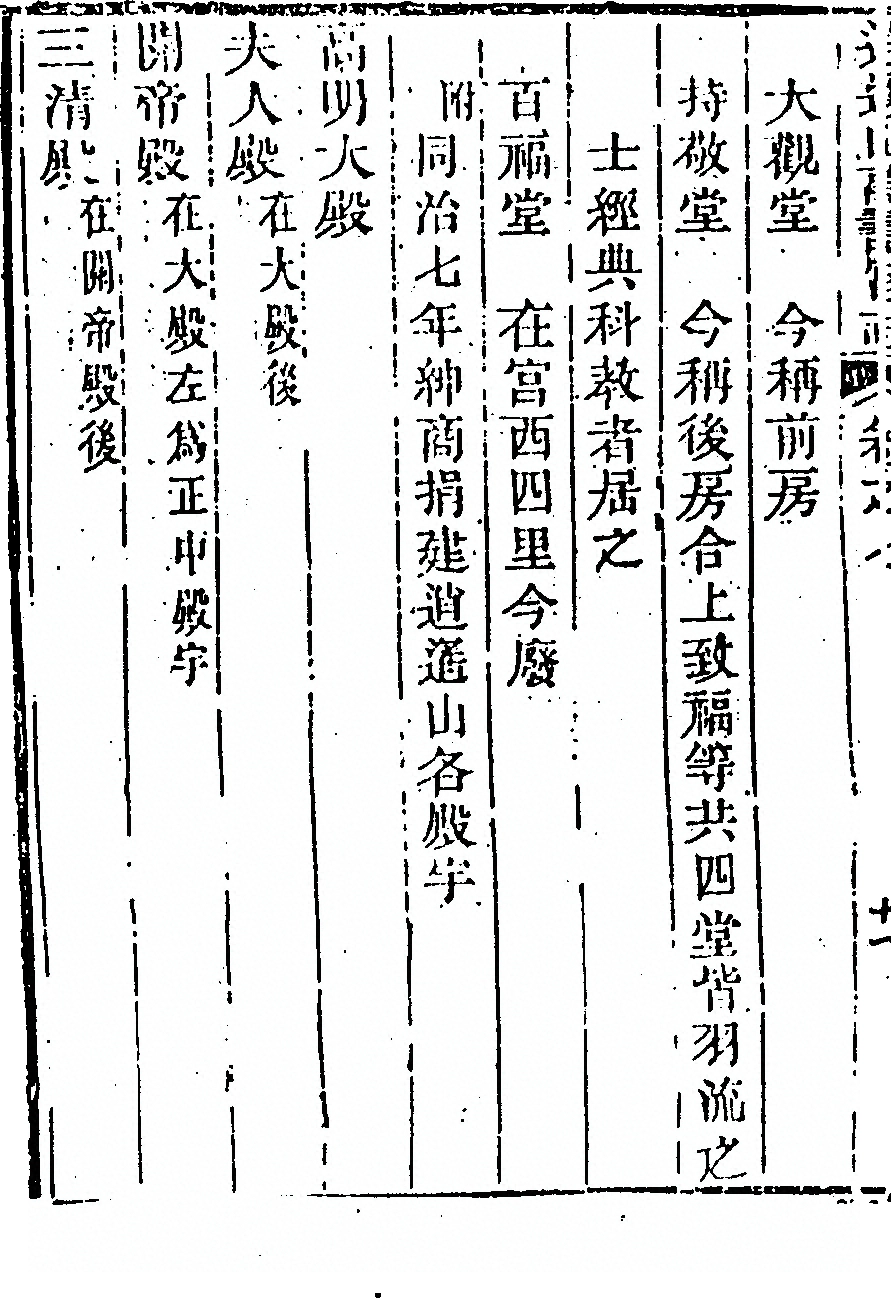 大觀堂　今稱前房
持敬堂　今稱後房合上致福等共四堂皆羽流之
士經典科教者居之
百福堂　在宮西四里今廢
附同治七年紳商捐建逍遥山各殿宇
高明大殿
夫人殿在大殿後
關帝殿在大殿左爲正中殿宇
三清殿在關帝殿後